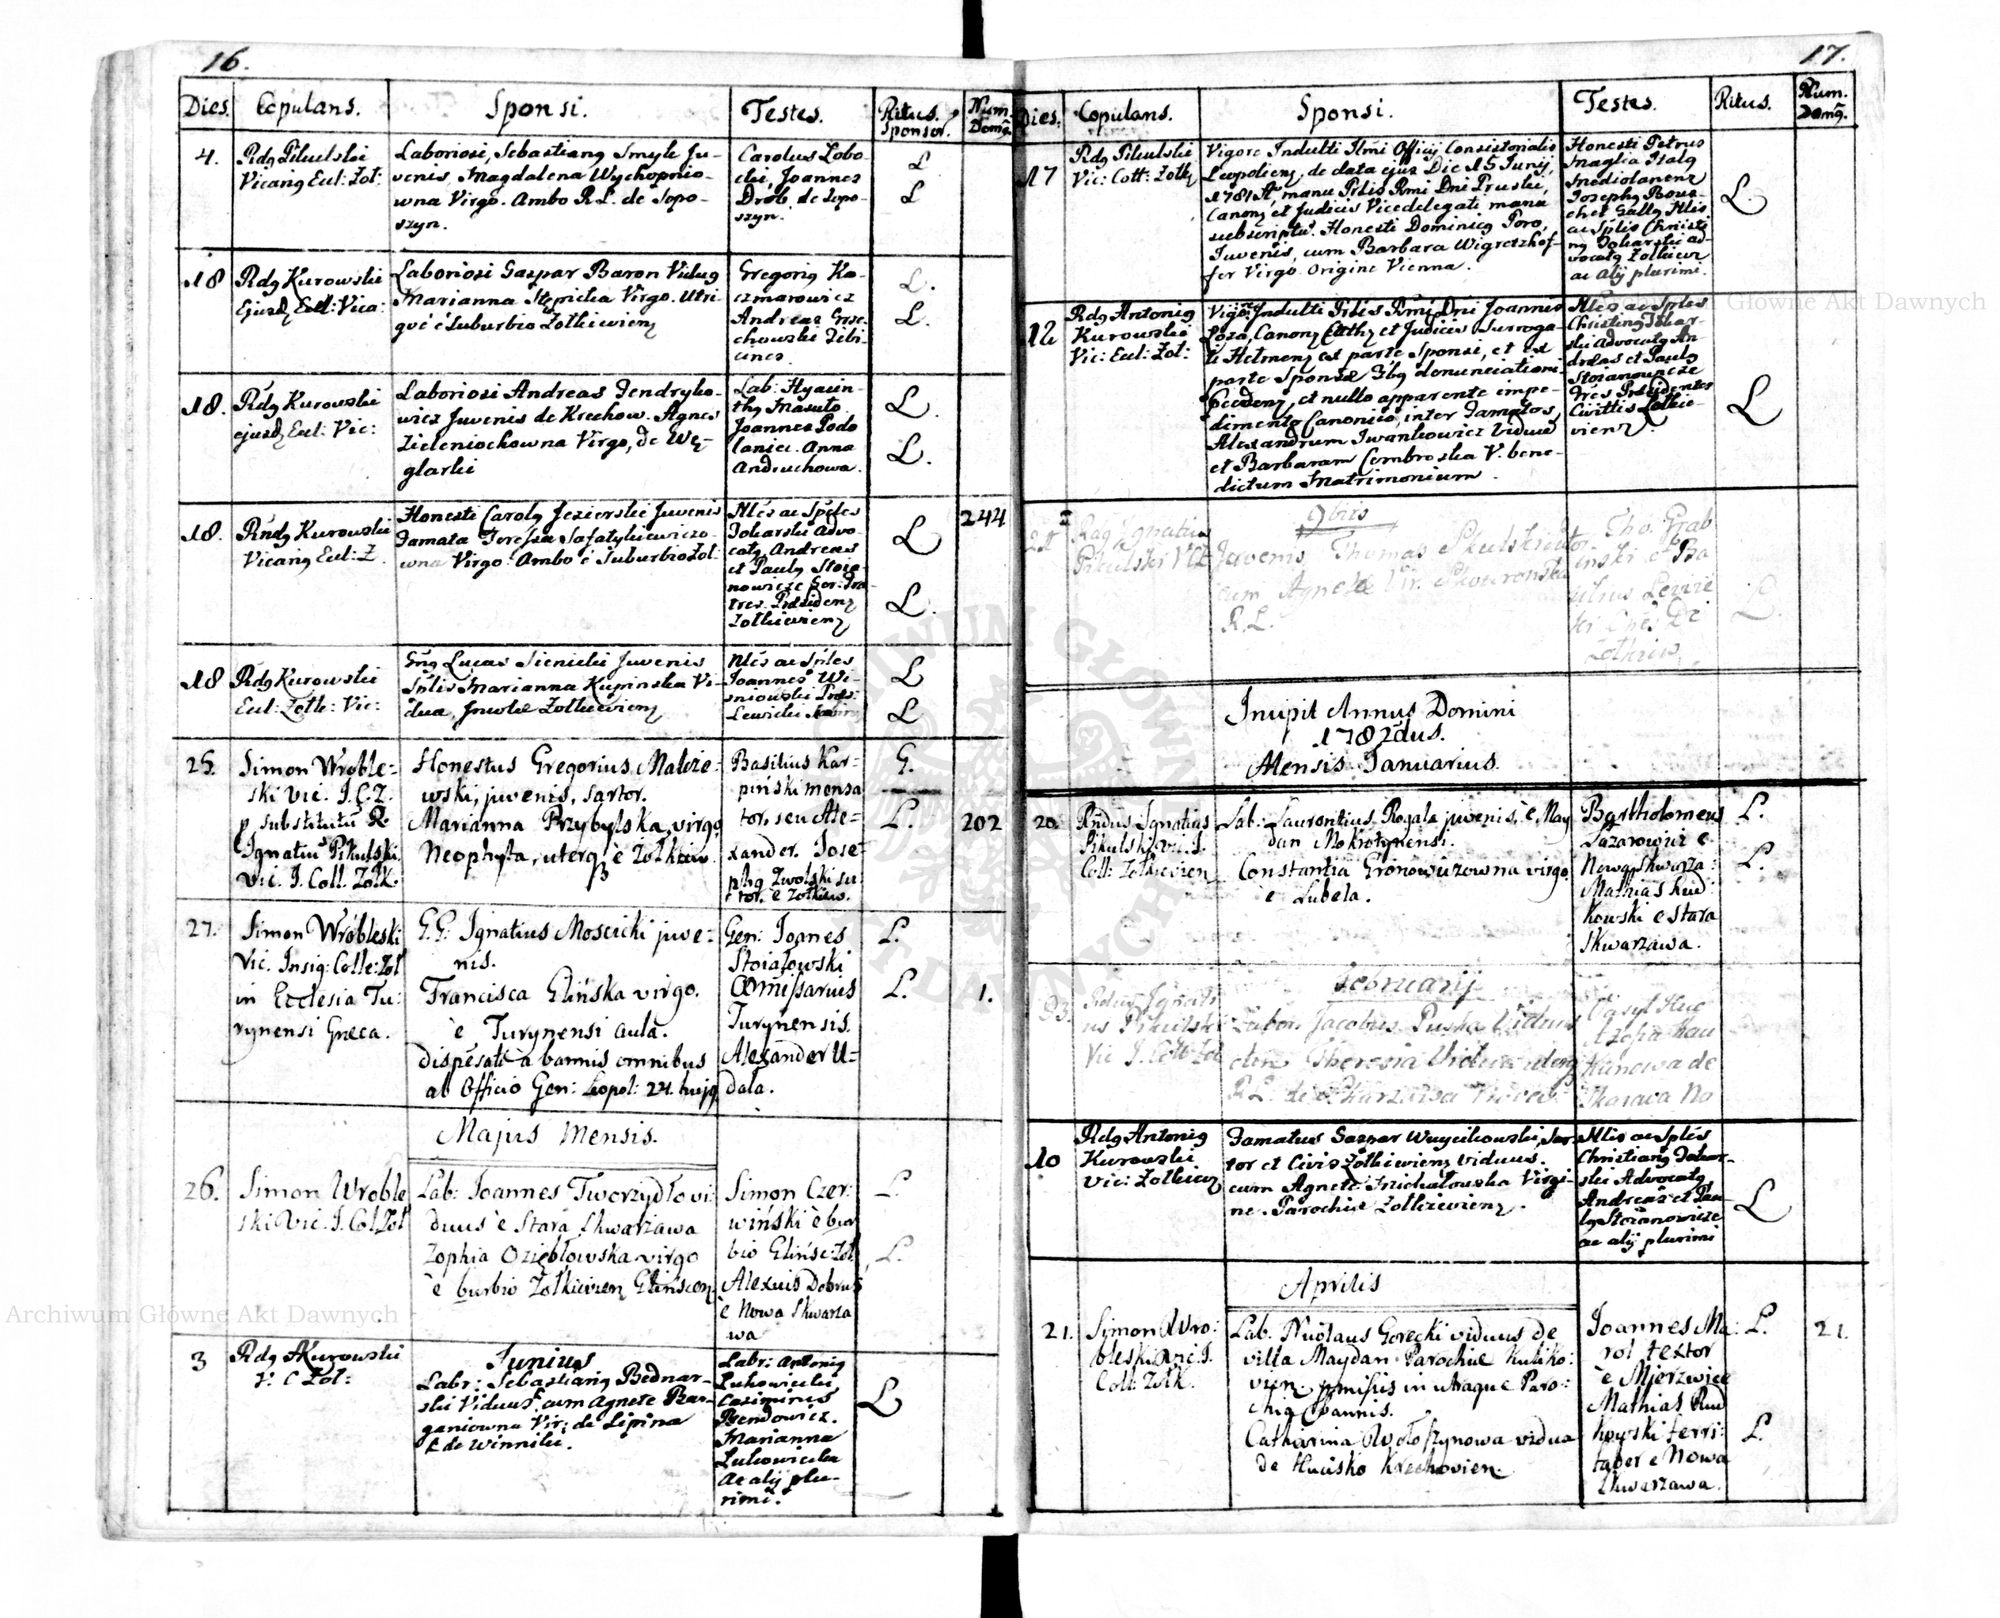 16.
Dies. Copulans. Sponsi. Testes. Ritus. Sponsor. Num. Domȹ.
4.
Rdꝰ Pikulski
Vicariꝰ Eccl: Żół:
Laboriosi, Sebastianꝰ Smyk Ju-
venis, Magdalena Wychopnio-
wna Virgo. Ambo R. L. de Sopo-
szyn.
Carolus Zobo-
cki, Joannes
Drob. de Sopo-
szyn.
L
L
18
Rdꝰ Kurowski
Ejusdꝫ Eccl: Vica:
Laboriosi Gaspar Baron Viduꝰ
Marianna Stępicka Virgo. Utri-
è Suburbio Zolkievienꝫ
Gregoriꝰ Ka-
czmarowicz
Andreas Grze-
chowski
L.
L.
18.
Rdꝰ Kurowski
ejusdꝫ Eccl: Vic:
Laboriosi Andreas Jendryko-
wicz Juvenis de Krechow. Agnes
Zieleniochowna Virgo, de Wę-
glarki
Lab: Hyacin-
thꝰ Masuto
Joannes Podo
laniec. Anna
Andruchowa.
L.
L.
18.
Rndꝰ Kurowski
Vicariꝰ Eccl: Z.
Honesti Carolꝰ Jezierski Juvenis
Famata Teressa Safatykiewiczo-
wna Virgo. Ambo è Suburbio Zol:
Nles ac Sples
Tokarski Advo-
catꝰ Andreas
et Paulꝰ Stoia-
nowicze Ger: Fra
tres. Præsidenꝫ
Zolkievienꝫ
L
L.
244
18
Rdꝰ Kurowski
Eccl: Zolk: Vic:
Gnꝰ Lucas Sienicki Juvenis
Splis Marianna Kupinska Vi-
dua, Incolæ Zolkievienꝫ
Nles ac Sples
Joannes Wi-
sniowski Præs:
Lewicki
L
L
25.
Simon Wroble=
ski Vic. I. C. Z.
p substitutũ R.
Ignatius Pikulski
Vic. I. Coll. Zolk.
Honestus Gregorius Maleze=
wski, juvenis, sartor.
Marianna Przybylska, virgo
Neophyta, uterq è Zolkiew.
Basilius Kar=
piński mensa
tor. seu Ale=
xander. Jose=
phꝰ Zwolski su
tor. è Zołkiew.
G.
L.
202
27.
Simon Wrobleski
Vic. Insig: Colle: Zoł
in Ecclesia Tu:
rynensi Græca.
G.G: Ignatius Moscicki juve=
nis.
Francisca Glińska virgo.
è Turynensi aula.
dispēsati à bannis omnibus
ab Officio Gen: Leopol: 24. hujꝰ
Gen: Joanes
Stoiałowski
Comissarius
Turynensis.
Alexander U=
dała.
L.
L.
1.
Majus Mensis.
26.
Simon Wroble
ski Vic. I. Col. Zoł
Lab: Joannes Tworzydło vi:
duus è Stara Skwarzawa
Zophia Oziębłowska virgo
è burbio Żołkivienꝫ Glinscenꝫ
Simon Czer:
wiński è bur
bio Glińsc: Zoł.
Alexius Dobrus
è Nowa Skwarza
wa
L.
L.
Junius
3
Rdꝰ A Kurowski
V. C Zol:
Labr: Sebastianꝰ Bednar-
ski Viduus, cum Agnete Bar-
ganiowna Vir: de Lipina
de Winniki.
Labr: Antoniꝰ
Lukowicki
Casimirus
Bendowicz.
Marianna
Lukowicka
Ac alij plu-
rimi.
L
17.
Dies. Copulans. Sponsi. Testes. Ritus. Num. Domȹ.
17
Rdꝰ Pikulski
Vic: Coll: Zolkꝫ
Vigore Indulti Ilmi Officij Consistorialis
Leopolienꝫ, de data ejus Die 15 Junij,
1781 Aº manu Prlis Rmi Dni Pruski,
Canonꝫ et Judicis Vicedelegati manu
subscriptũ. Honesti Dominicꝰ Poro,
Juvenis, cum Barbara Wigretzhof-
fer Virgo. Origine Vienna.
Honesti Petrus
Maglia Italꝰ
Mediolanenꝫ
Josephꝰ Bous-
chet Gallꝰ Nlis
ac Splis Christi
nꝰ Tokarski ad-
vocatꝰ Zolkievi
ac alij plurimi.
L.
12
Rdꝰ Antoniꝰ
Kurowski
Vic: Eccl: Zol:
Vigore Indulti Prlis Rmi Dni Joannis
Poza, Canonꝫ Cathꝫ et Judicis Surroga-
ti Helmenꝫ ex parte Sponsi, et ex
parte Sponsæ 3bꝰ denunciationi-
præcedenꝫ, et nullo apparente impe-
dimento Canonico, inter Famatos,
Alexandrum Iwankowicz Viduũ
et Barbaram Cembroska V. bene-
dictum Matrimonium.
Nles ac Sples
Christinꝰ Tokar-
ski Advocatꝰ An-
dreas et Paulꝰ
Stoianowicze
Fres Præsidentes
Civittis Zolkie-
vienꝫ.
L
9bris
Rdꝰ Ignatius
Pikulski V C Z
Juvenis Thomas Skulski
cum Agnete Vir. Skowronska
R. L.
Tho: Grab
inski et Ba
silius Lewic
ki
Zolkiew.
L.
Incipit Annus Domini
1782dus.
Mensis Januarius.
20.
Rndus Ignatius
Pikulski vic. I.
Coll: Zolkievien
Lab: Laurentius Rogala juvenis, è May
dan Mokrotynensi.
Constantia Gronowiczowna virgo
è Lubela.
Bartholomeus
Lazarowicz è
Nowa Skwarza:
Mathias Rud
kowski è Stara
Skwarzawa.
L.
L.
Februarij
Rdus Ignati
us Pikulski
Vic I. Coll Zol
Labor. Jacobus Puska Viduus
Theresia Vidua
R. L. de Skarzawa Nova
Wasyl Huc
Kunowa de
Skarawa No
10
Rdꝰ Antoniꝰ
Kurowski
Vic: Zolkienꝫ
Famatus Gaspar Wuycikowski, Sar-
tor et Civis Zolkievienꝫ viduus.
cum Agnete Michałowska Virgi-
ne. Parochiæ Zolkievienꝫ.
Nlis ac Splis
Christianꝰ Tokar-
ski Advocatꝰ
Andreas et Pau-
lꝰ Stoianowicze
ac alij plurimi
L
Aprilis
21.
Simon Wro:
bleski vic. I.
Coll: Zołk.
Lab. Nicolaus Gorecki viduus de
villa Maydan Parochiæ Kuliko:
vien: pmissis in utraque Paro:
chia Bannis.
Catharina Wołoszynowa vidua
de Hucisko Krechovien.
Joannes Ma:
rol textor
è Mierzwice
Mathias Rud
kowski ferri:
faber è Nowa
Skwarzawa.
L.
L.
21.
Archiwum Główne Akt Dawnych
Archiwum Główne Akt Dawnych
ARCHIWUM GŁÓWNE AKT DAWNYCH